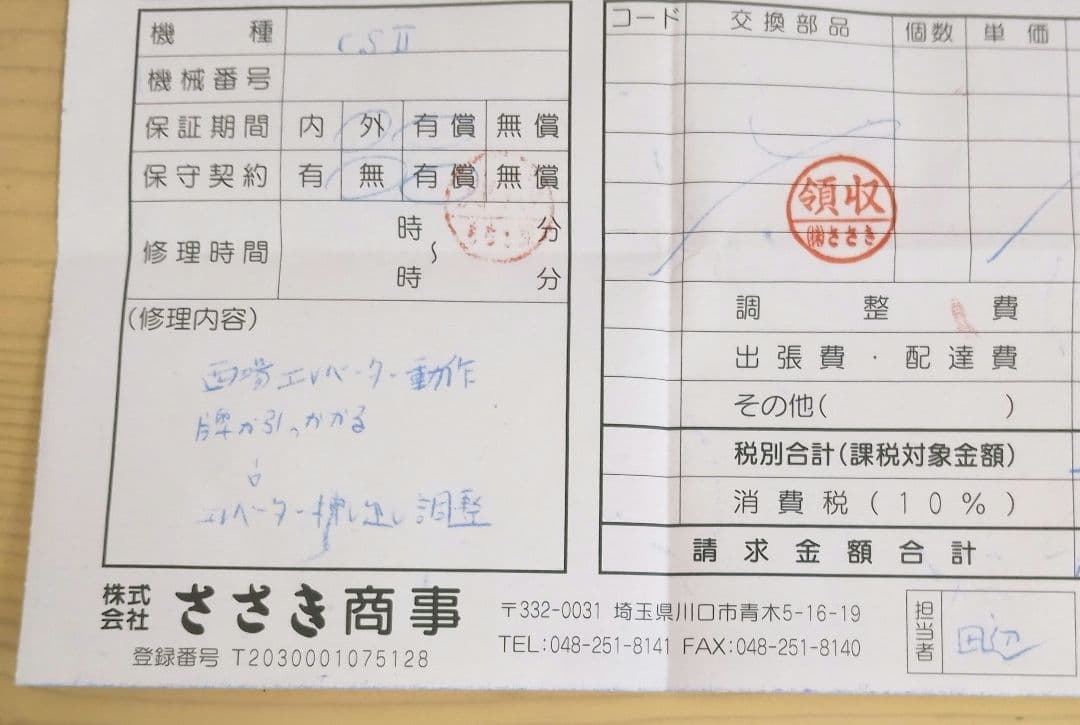 機種 CSⅡ
機械番号
保証期間 内 外 有償 無償
保守契約 有 無 有償 無償
修理時間 時 分
〜
時 分
(修理内容)
西場エレベーター動作
牌が引っかかる
↓
エレベーター 出し調整
コード 交換部品 個数 単価
領収
㈱ささき
調整費
出張費・配達費
その他( )
税別合計(課税対象金額)
消費税(10%)
請求金額合計
株式会社 ささき商事
登録番号 T2030001075128
〒332-0031 埼玉県川口市青木5-16-19
TEL:048-251-8141 FAX:048-251-8140
担当者 田辺